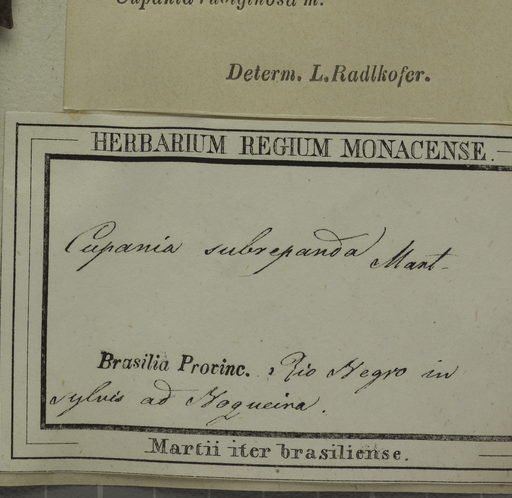 Cupania rubiginosa m.
Determ. L. Radlkofer.
HERBARIUM REGIUM MONACENSE.
Cupania subrepanda Mart.
Brasilia Provinc. : Rio Negro in
sylvis ad Nogueira.
Martii iter brasiliense.